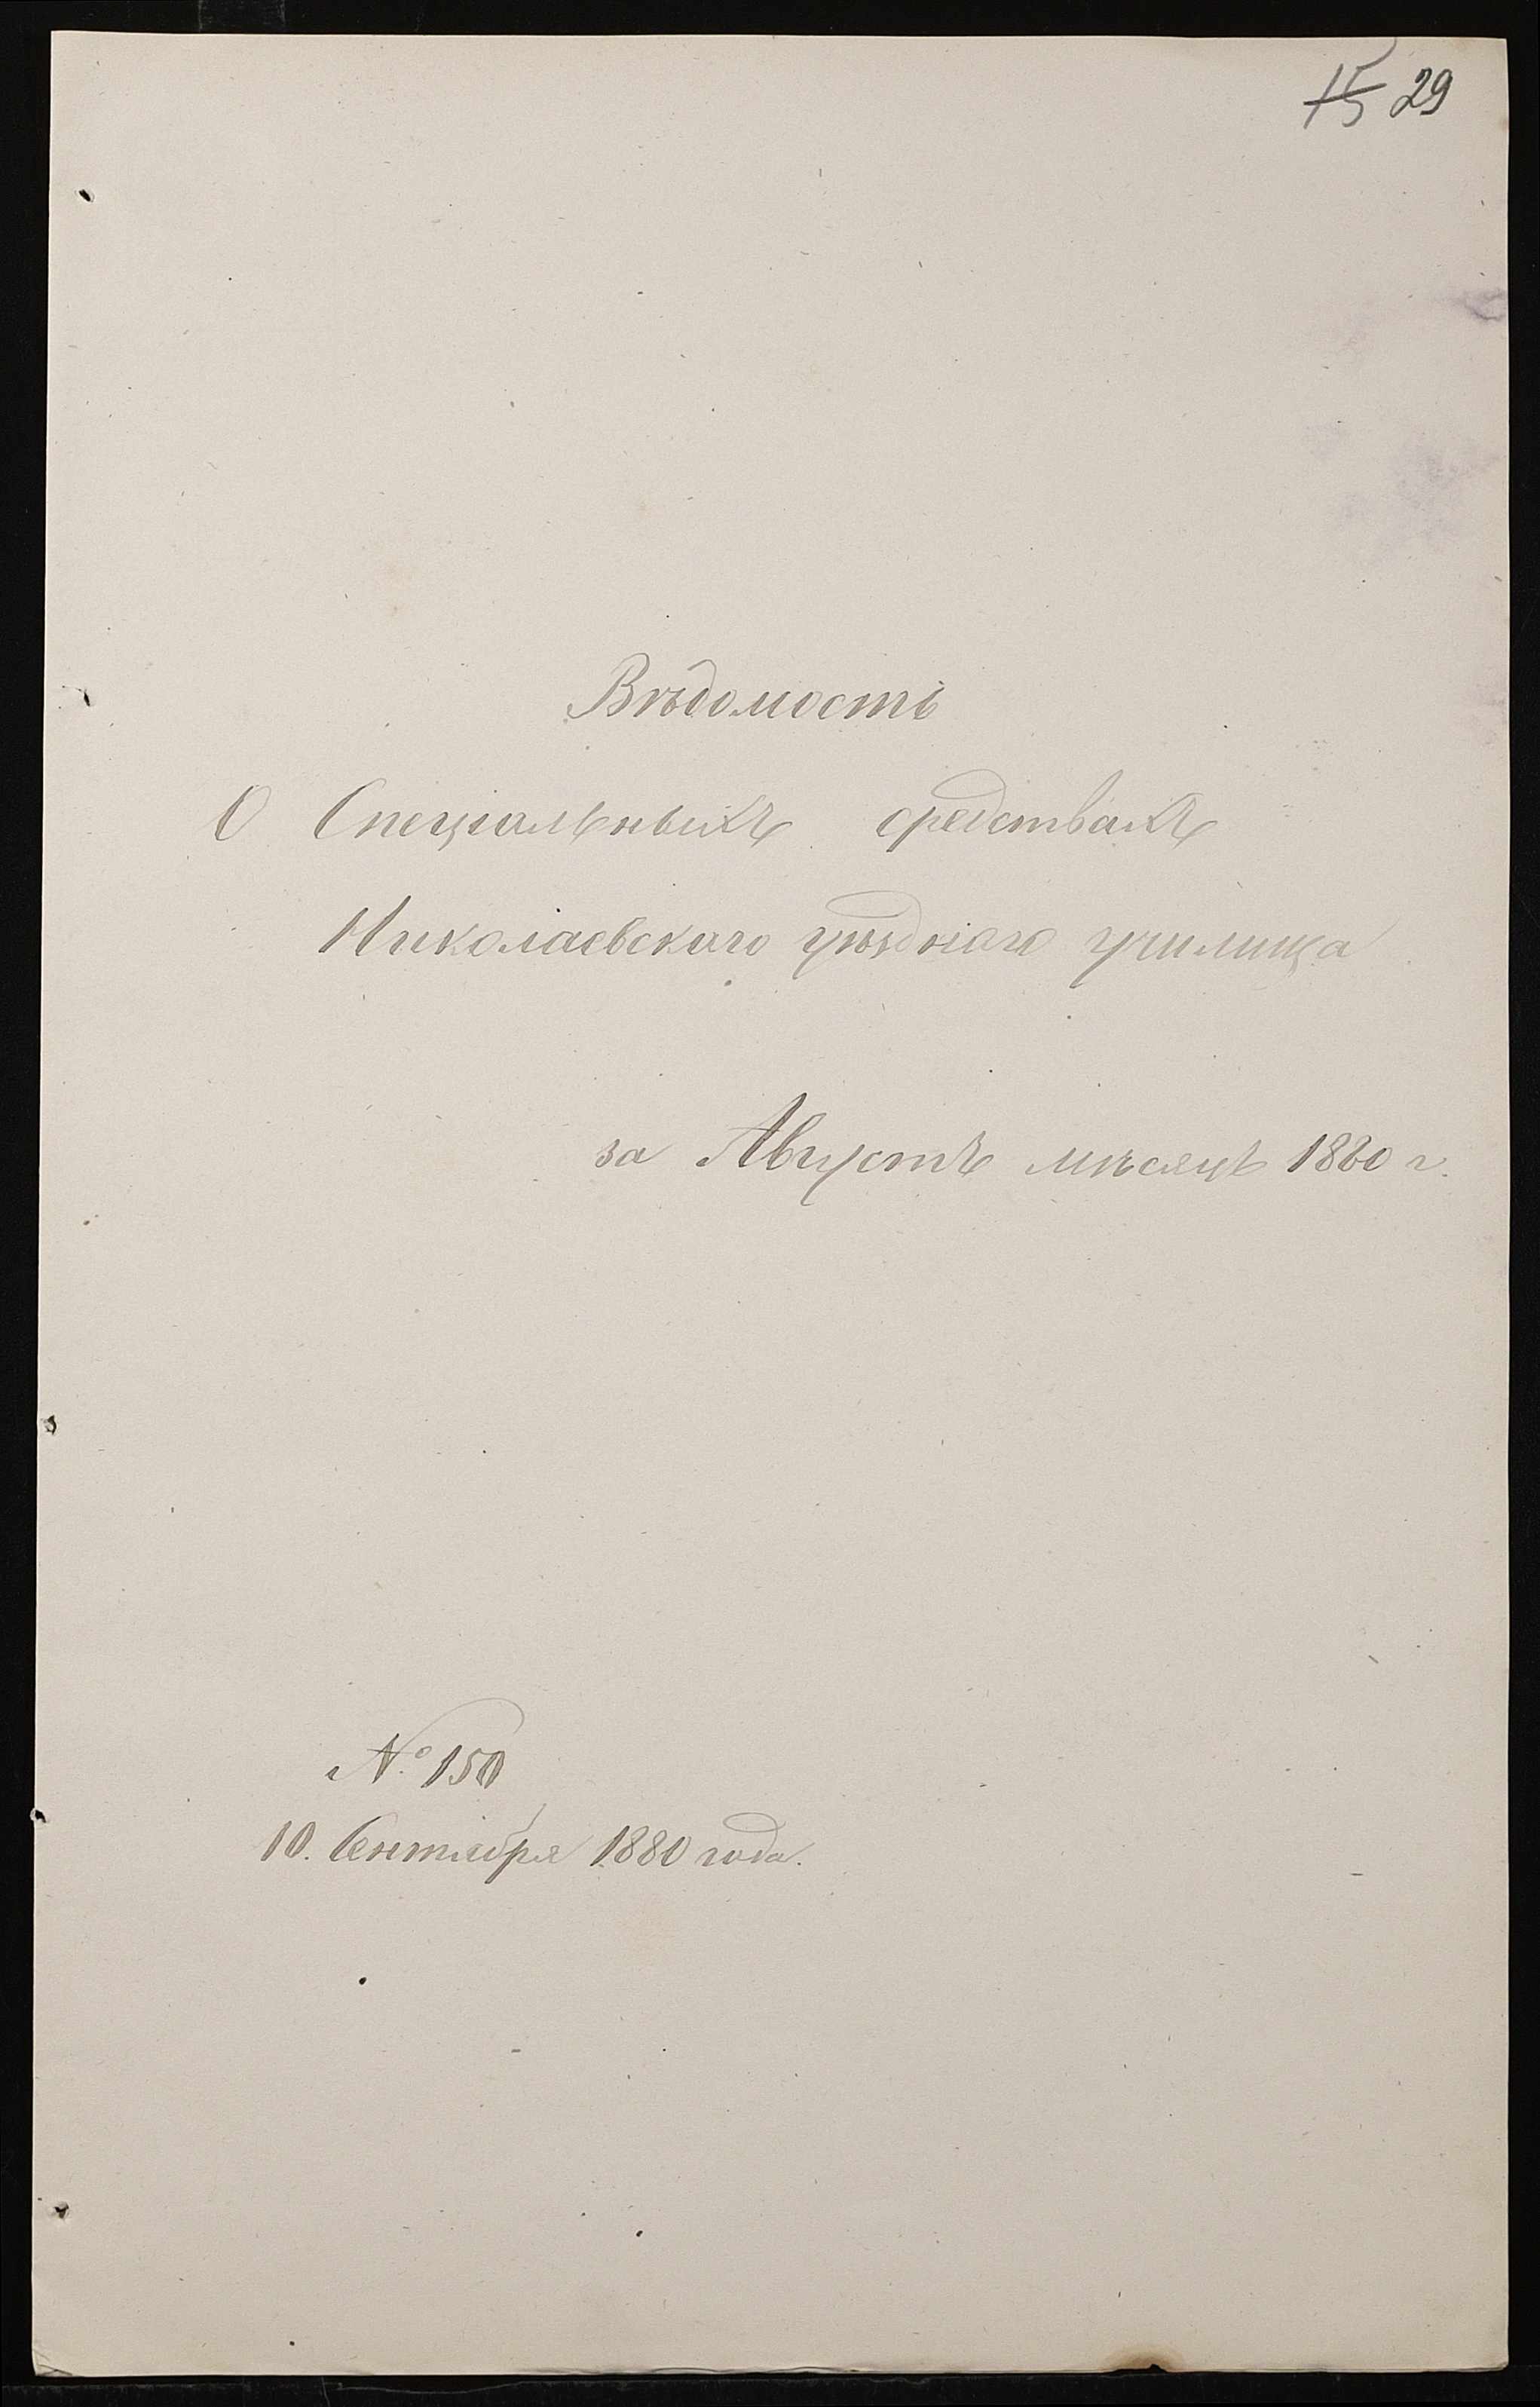 15 29
Вѣдомость
О Спеціальныхъ средствахъ
Николаевскаго уѣзднаго училища
за Августъ мѣсяцъ 1880 г.
№ 150
10. Сентября 1880 года.